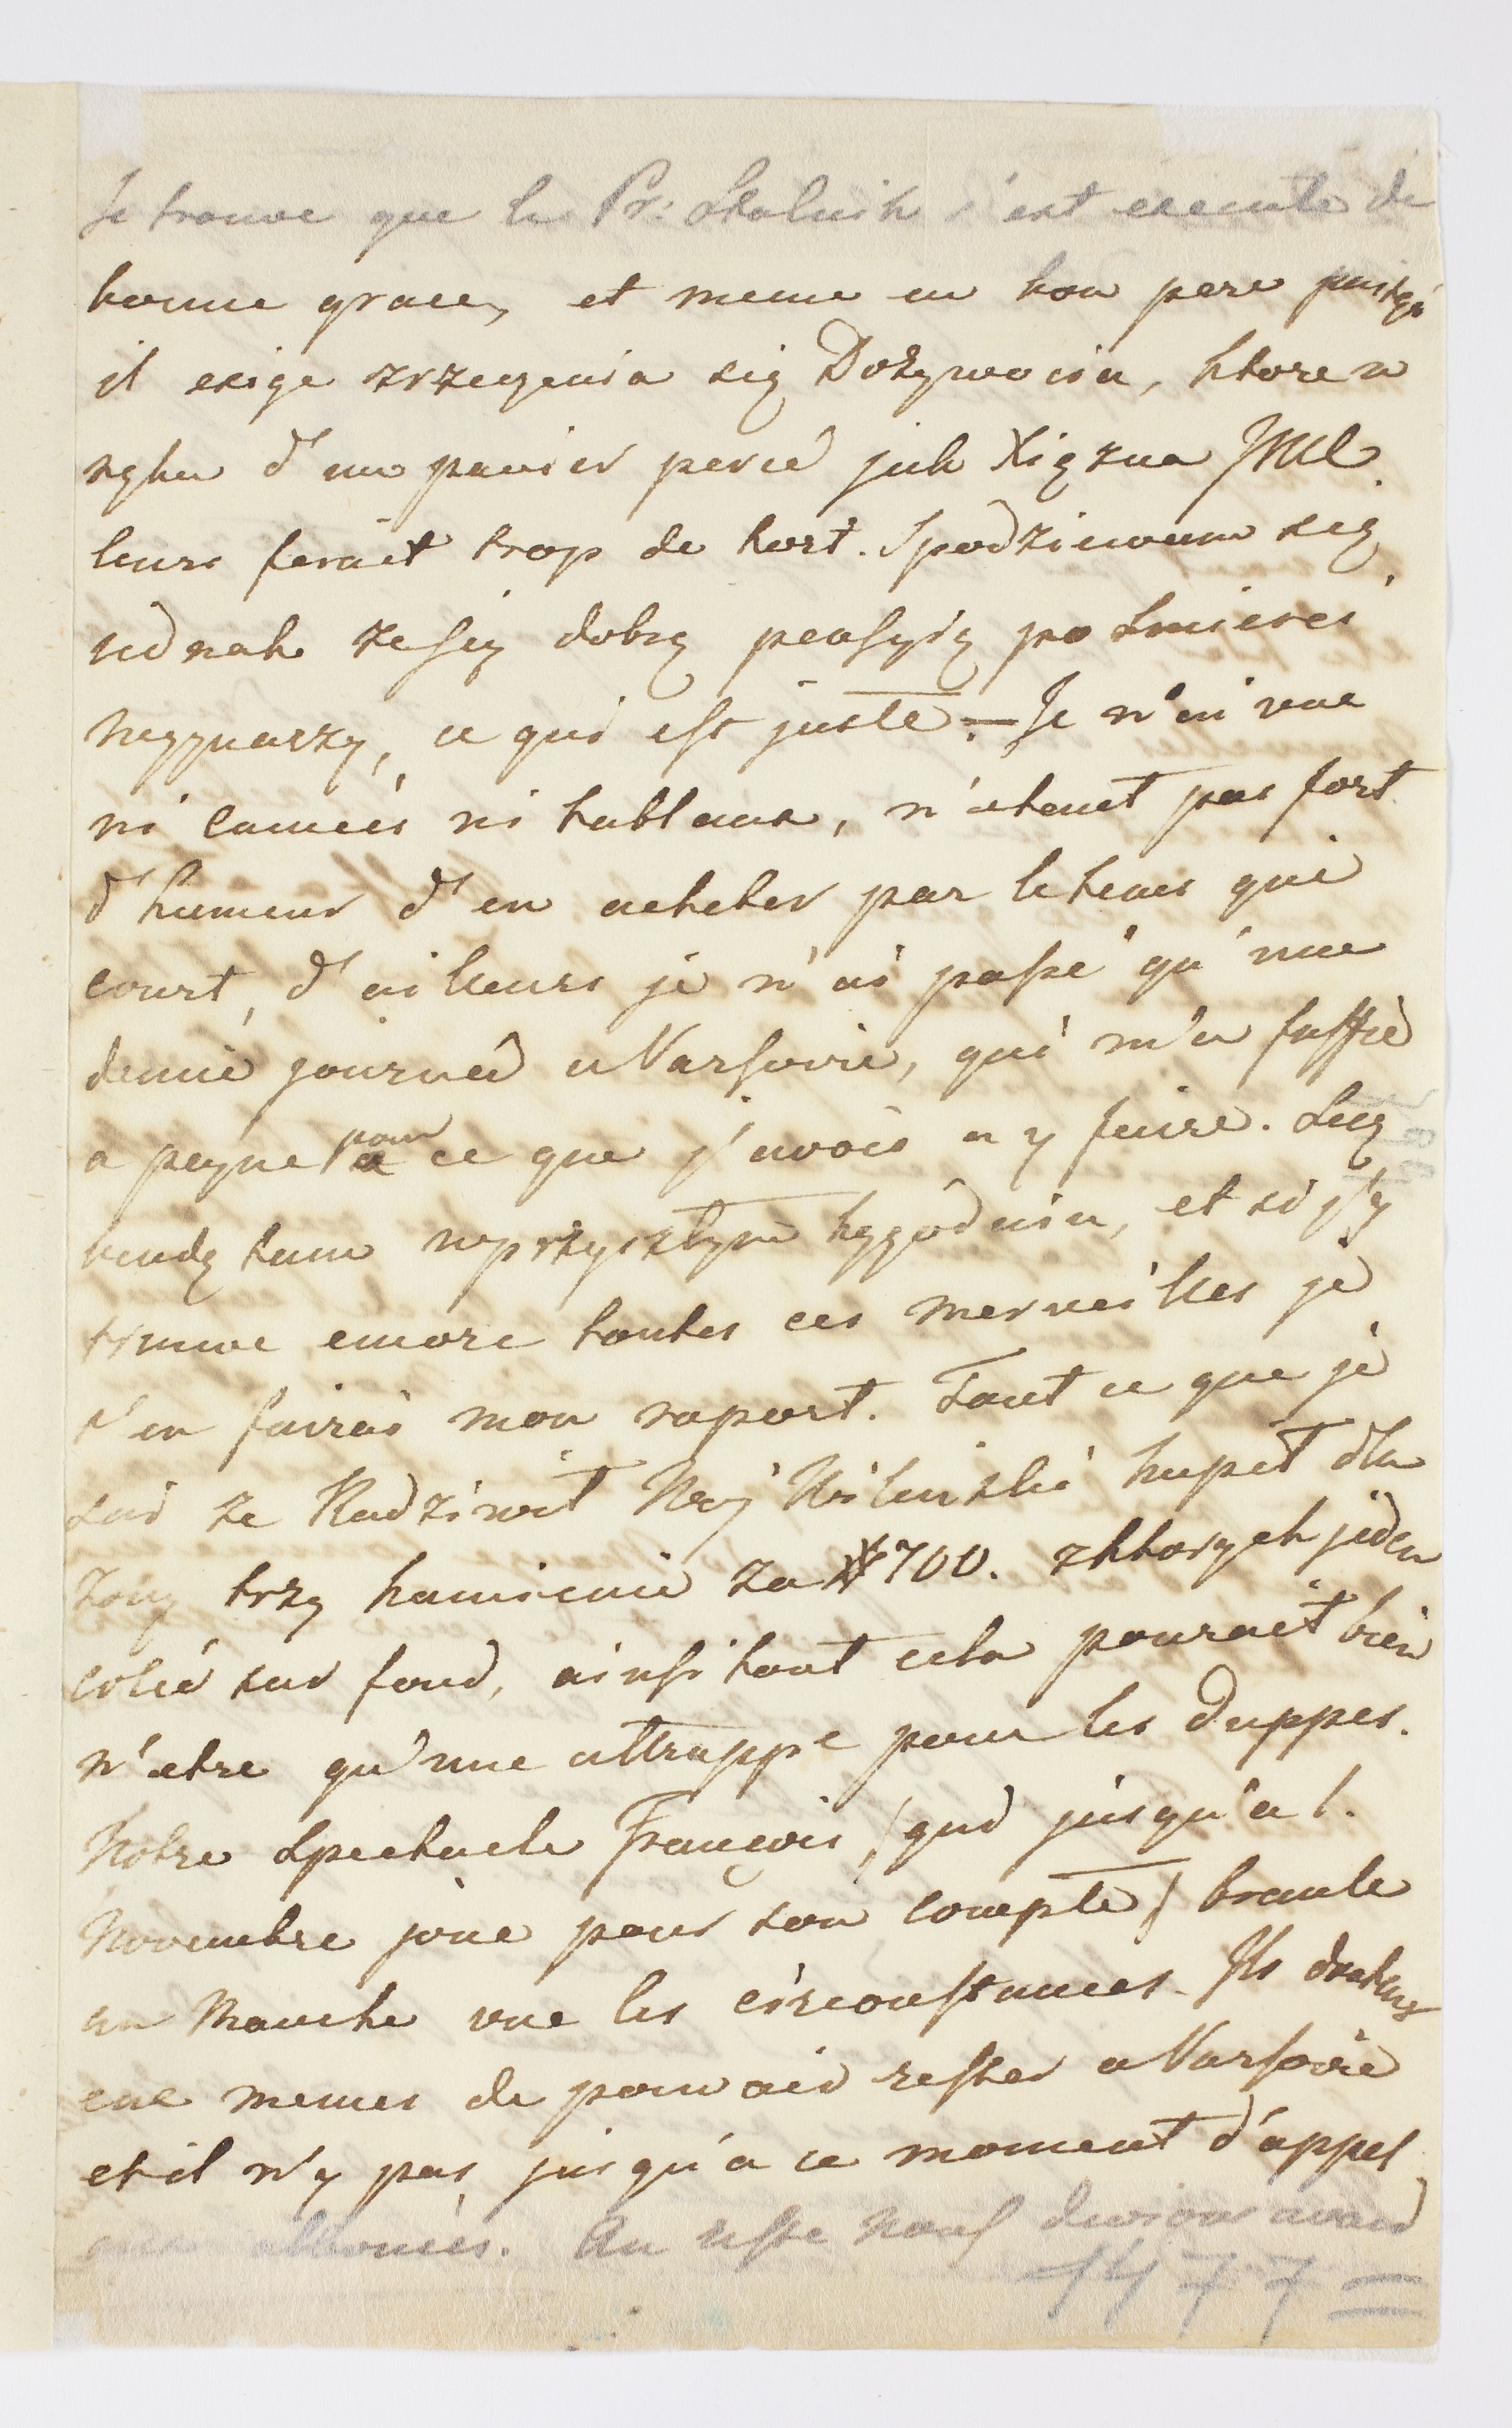 Je trouve que le Pr: Stolnik s'est execute de
bonne grace, et meme en bon pere puisqu'
il exige zrzeczenia się Dożywocia, ktore w
ręku d'un panier percé jak Xiązna JMC.
leurs ferait trop de tort. Spodziewam się
jednak ze Jey dobrą pensyią po Smierci
naznaczy, ce qui est juste. — Je n'ai vue
ni Camées ni tableaux, n'etant pas fort
d'humeur d'en acheter par le tems qui
court, d'ailleurs je n'ai passé qu'une
demie journée a Varsovie, qui m'a suffie
a peyne pour ce que j'avois a y faire.
bendę tam w przyszłym tygodniu, et si j'y
trouve encore toutes ces merveilles je
t'en fairai mon raport. Tout ce que je
sai ze Radziwił Woj Wilenski kupił dla
zony trzy kamienie za # 700. z ktorych jeden
colié sur fond, ainsi tout cela pourait bien
n'etre qu'une attrappe pour les Duppes.
Notre Spectacle François /qui jusqu'a 1.
Novembre joue pour son Compte/ branle
au Manche vue les circonstances. Ils doutent
eux memes de pouvoir rester a Varsovie
et il n'y pas jusqu'a ce moment d'appel
aux abbonnés. Au reste nous devions avoir
1477